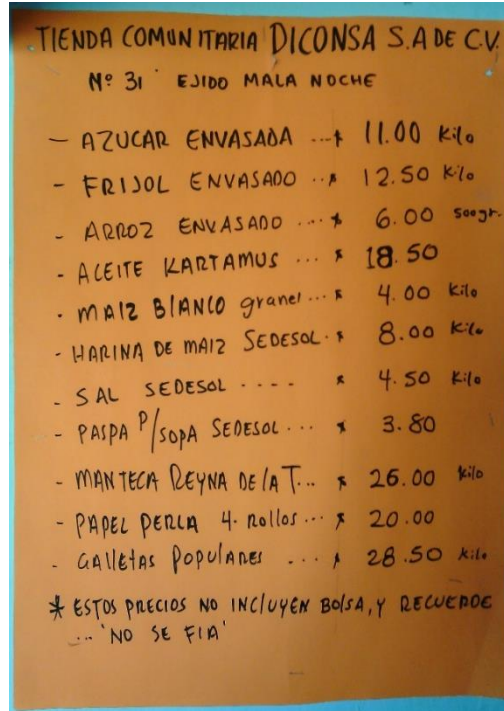 TIENDA COMUNITARIA DICONSA S.A DE C.V.
Nº 31 EJIDO MALA NOCHE
- AZUCAR ENVASADA ...$ 11.00 Kilo
- FRIJOL ENVASADO ...$ 12.50 Kilo
- ARROZ ENVASADO ....$ 6.00 500gr.
- ACEITE KARTAMUS ... $ 18.50
- MAIZ BLANCO granel ...$ 4.00 Kilo
- HARINA DE MAIZ SEDESOL. $ 8.00 Kilo
- SAL SEDESOL .... $ 4.50 Kilo
- PASPA P/SOPA SEDESOL ... $ 3.80
- MANTECA REYNA DE LA T... $ 26.00 Kilo
- PAPEL PERLA 4. ROLLOS ... $ 20.00
- GALLETAS POPULARES ... $ 28.50 Kilo
* ESTOS PRECIOS NO INCLUYEN BOLSA, Y RECUERDE
... 'NO SE FIA'